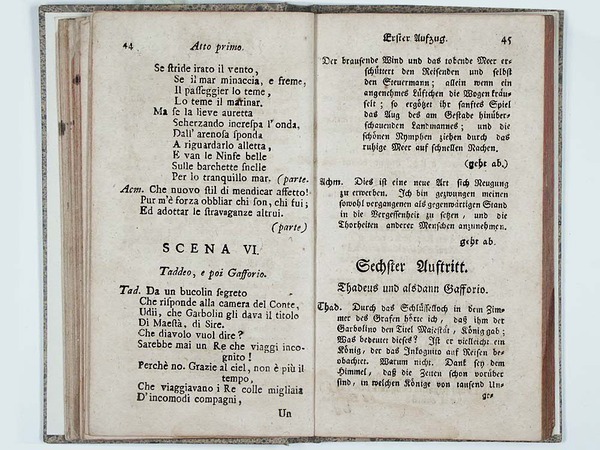 44 Atto primo.
Se stride irato il vento,
Se il mar minaccia, e freme,
Il passeggier lo teme,
Lo teme il marinar.
Ma se la lieve auretta
Scherzando increspa l'onda,
Dall' arenosa sponda
A riguardarlo alletta,
E van le Ninfe belle
Sulle barchette snelle
Per lo tranquillo mar. (parte.
Acm. Che nuovo stil di mendicar affetto!
Pur m'è forza obbliar chi son, chi fui;
Ed adottar le stravaganze altrui.
(parte)
SCENA VI.
Taddeo, e poi Gafforio.
Tad. Da un bucolin segreto
Che risponde alla camera del Conte,
Udii, che Garbolin gli dava il titolo
Di Maestà, di Sire.
Che diavolo vuol dire?
Sarebbe mai un Re che viaggi inco-
gnito!
Perchè no. Grazie al ciel, non è più il
tempo,
Che viaggiavano i Re colle migliaia
D'incomodi compagni,
Un
Erster Aufzug. 45
Der brausende Wind und das tobende Meer er-
schüttert den Reisenden und selbst
den Steuermann; allein wenn ein
angenehmes Lüftchen die Wogen kräu-
selt; so ergötzet ihr sanftes Spiel
das Aug des am Gestade hinüber-
schauenden Landmannes; und die
schönen Nymphen ziehen durch das
ruhige Meer auf schnellen Nachen.
(geht ab.)
Achm. Dies ist eine neue Art sich Neugung
zu erwerben. Ich bin gezwungen meinen
sowohl vergangenen als gegenwärtigen Stand
in die Vergessenheit zu setzen, und die
Thorheiten anderer Menschen anzunehmen.
geht ab.
Sechster Auftritt.
Thadeus und alsdann Gafforio.
Thad. Durch das Schlüsselloch in dem Zim-
mer des Grafen hörte ich, daß ihm der
Garbolino den Titel Majestät, König gab;
Was bedeutet dieses? Ist er vielleicht ein
König, der das Inkognito auf Reisen be-
obachtet. Warum nicht. Dank sey dem
Himmel, daß die Zeiten schon vorüber
sind, in welchen Könige von tausend Un-
ge-